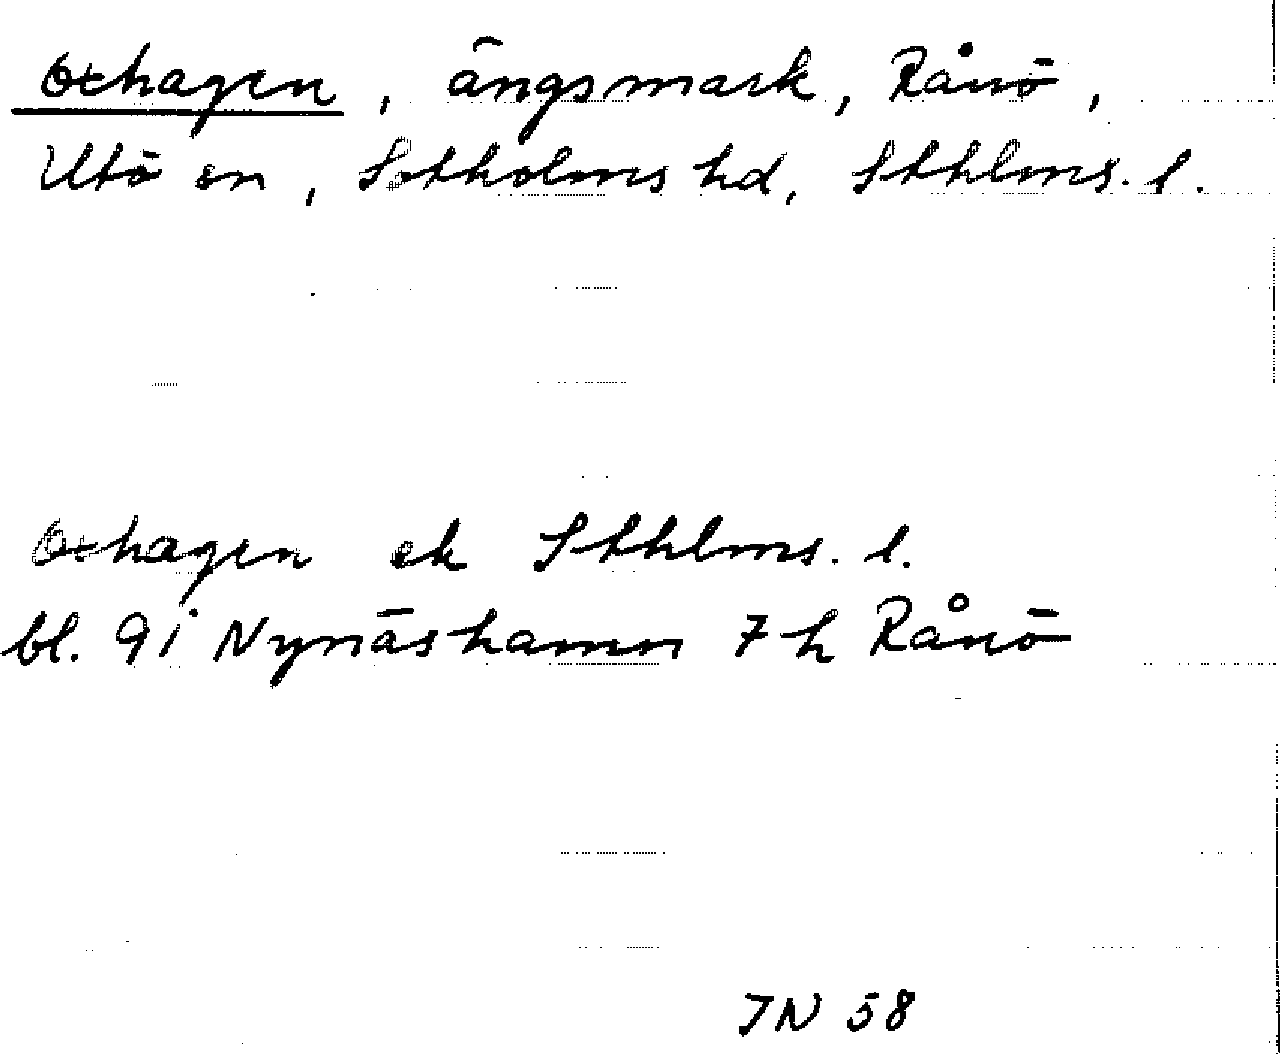 Oxhagen, ängsmark, Rånö,
Utö sn, Sotholms hd, Sthlms. l.
Oxhagen ek Sthlms. l.
bl. 9i Nynäshamn 7h Rånö
JN 58